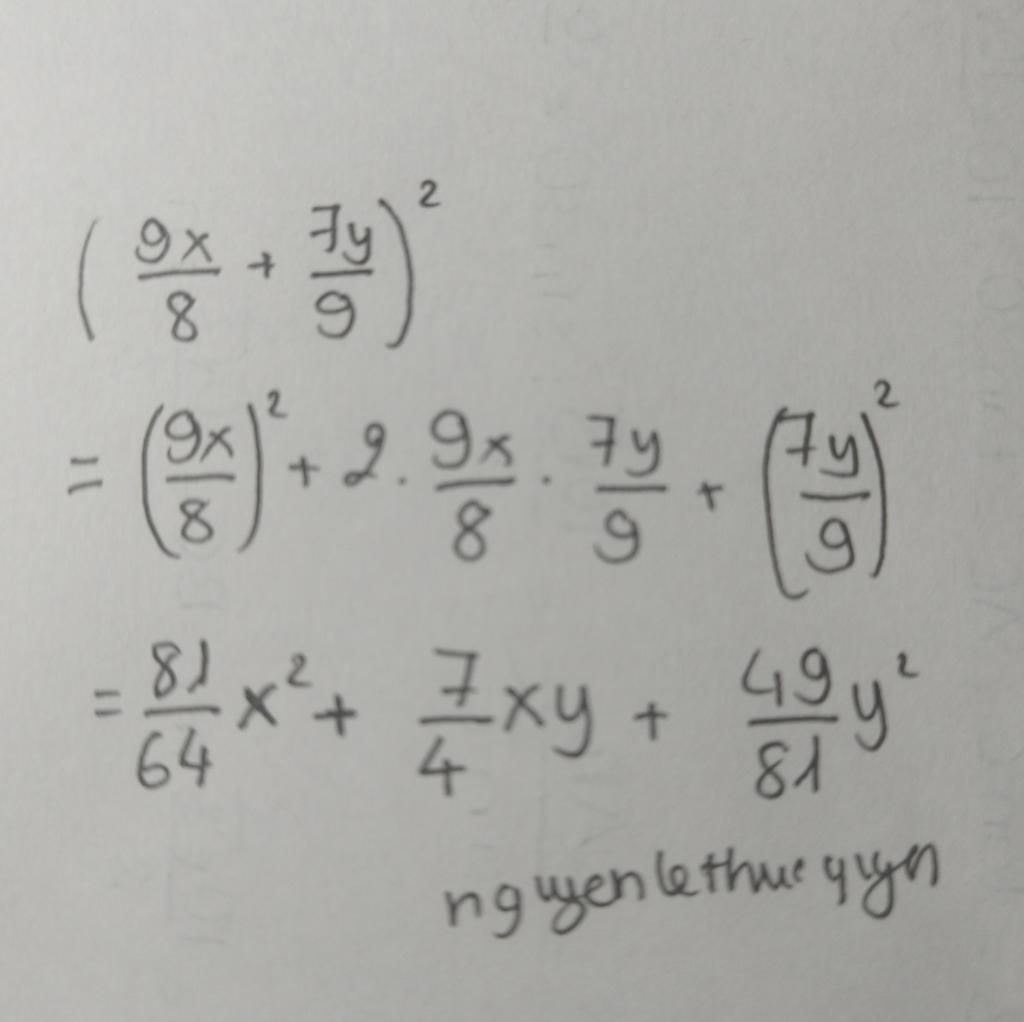 (9x/8 + 7y/9)²
= (9x/8)² + 2 . 9x/8 . 7y/9 + (7y/9)²
= 81/64 x² + 7/4 xy + 49/81 y²
nguyenlethuc quyen